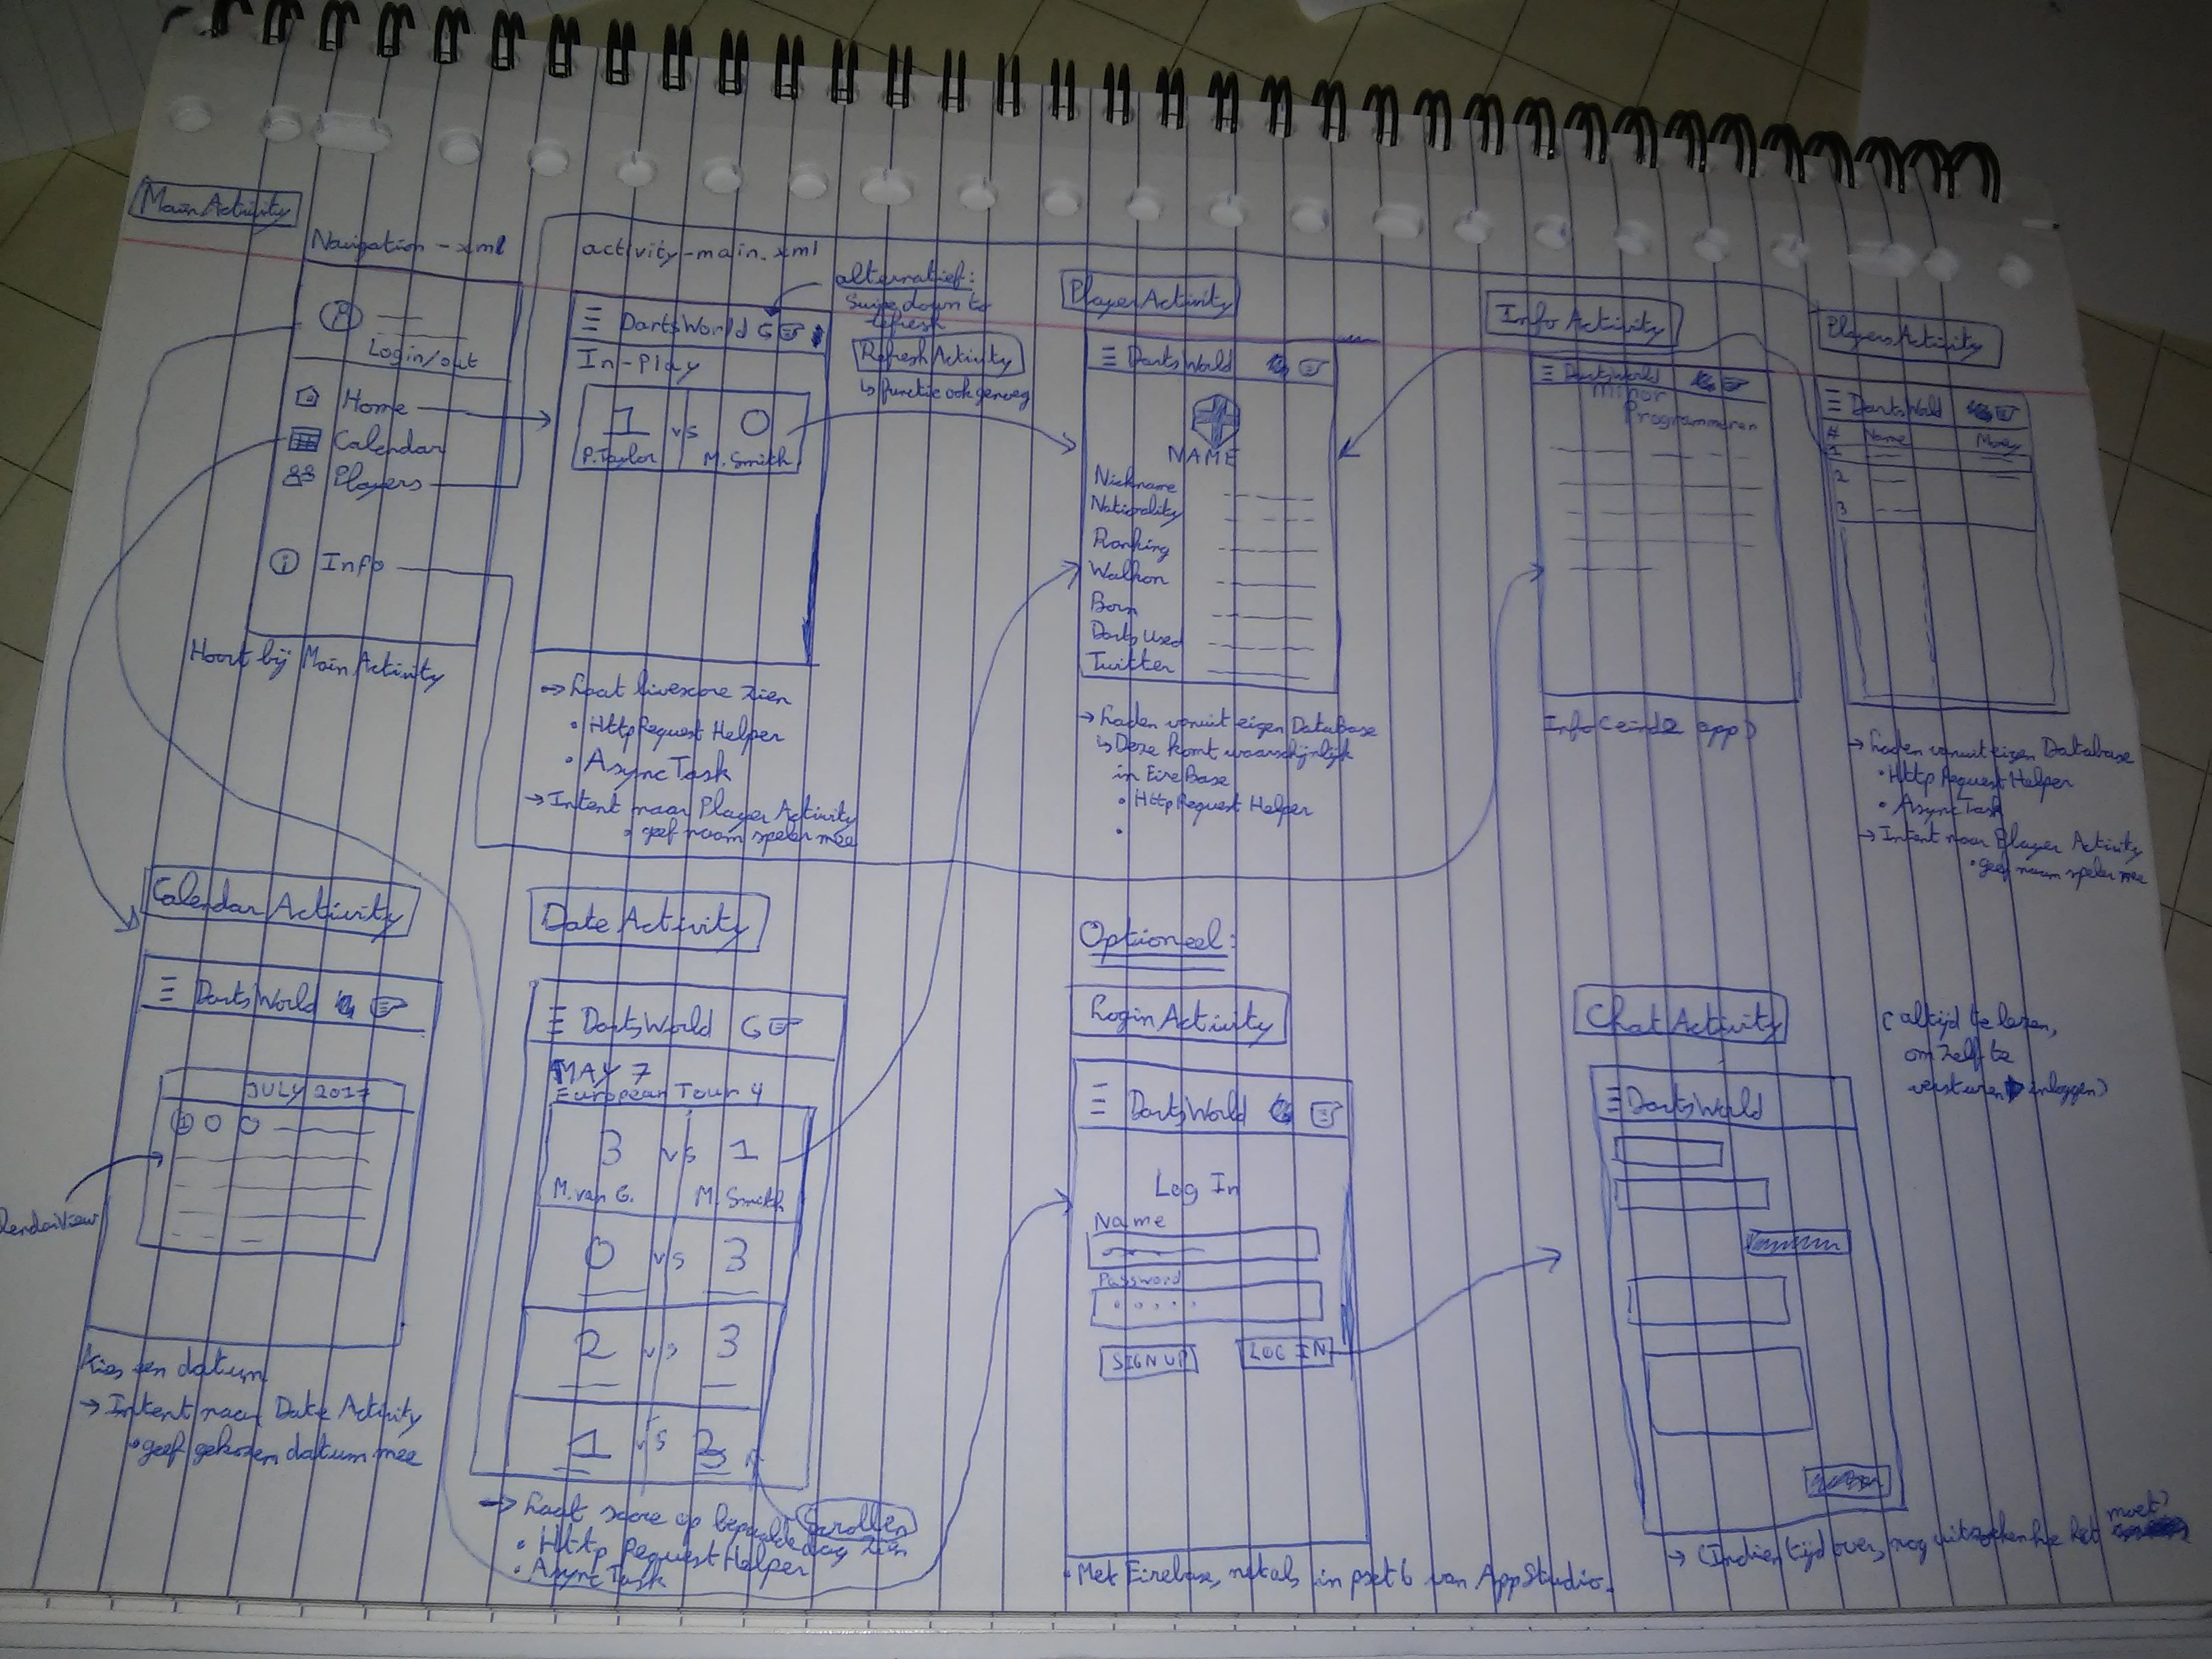 MainActivity
Navigation-xml
Login/out
Home
Calendar
Players
Info
Hoort bij MainActivity
activity-main.xml
DartsWorld
In-Play
1 vs 0
P.Taylor M. Smith
alternatief:
Swipe down to
refresh
RefreshActivity
↳ functie ook genoeg
→ Laat livescore zien
• HttpRequest Helper
• AsyncTask
→ Intent naar Player Activity
• geef naam speler mee
PlayerActivity
DartsWorld
NAME
Nickname
Nationality
Ranking
Walkon
Born
Darts Used
Twitter
→ Laden vanuit eigen Database
↳ Deze komt waarschijnlijk
in FireBase
• HttpRequest Helper
•
Info Activity
DartsWorld
Minor
Programmeren
Info (einde app)
PlayersActivity
DartsWorld
# Name Money
1
2
3
→ Laden vanuit eigen Database
• HttpRequest Helper
• AsyncTask
→ Intent naar Player Activity
• geef naam speler mee
Calendar Activity
DartsWorld
JULY 2017
1
lendarView
Kies een datum
→ Intent naar Date Activity
• geef gekozen datum mee
Date Activity
DartsWorld
MAY 7
European Tour 4
3 vs 1
M. van G. M. Smith
0 vs 3
2 vs 3
1 vs 3
Scrollen
→ Laat score op bepaalde dag zien
• Http RequestHelper
• AsyncTask
Optioneel:
LoginActivity
DartsWorld
Log In
Name
Password
SIGN UP LOG IN
• Met Firebase, net als in pset 6 van AppStudio.
ChatActivity
(altijd te lezen,
om zelf te
versturen inloggen)
DartsWorld
→ (Indien tijd over, nog uitzoeken hoe het moet)